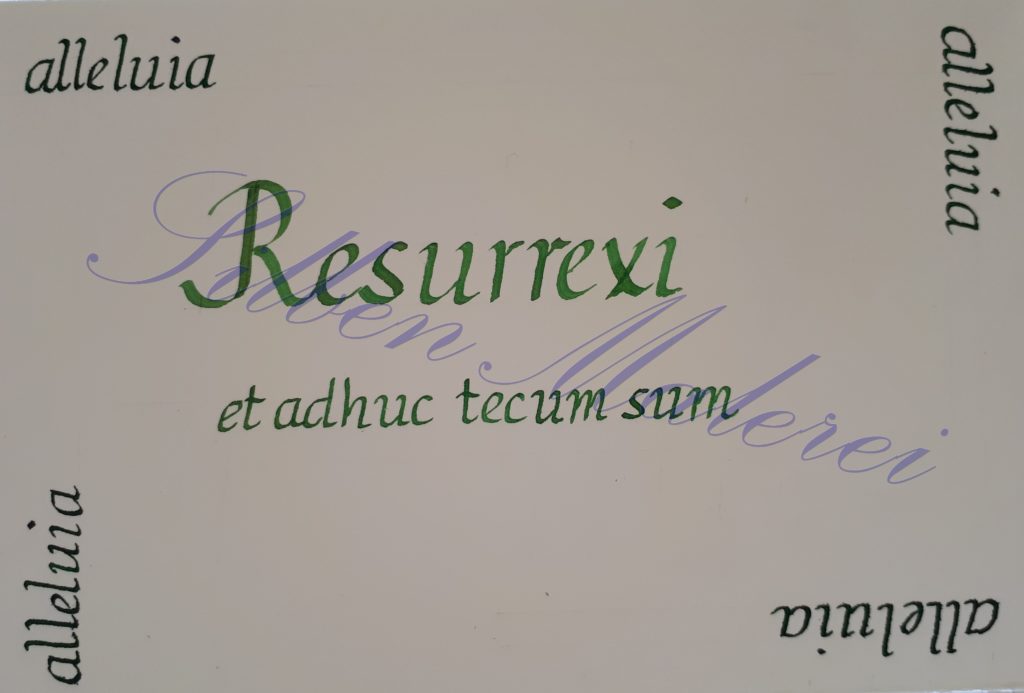 alleluia
alleluia
Resurrexi
et adhuc tecum sum
alleluia
alleluia